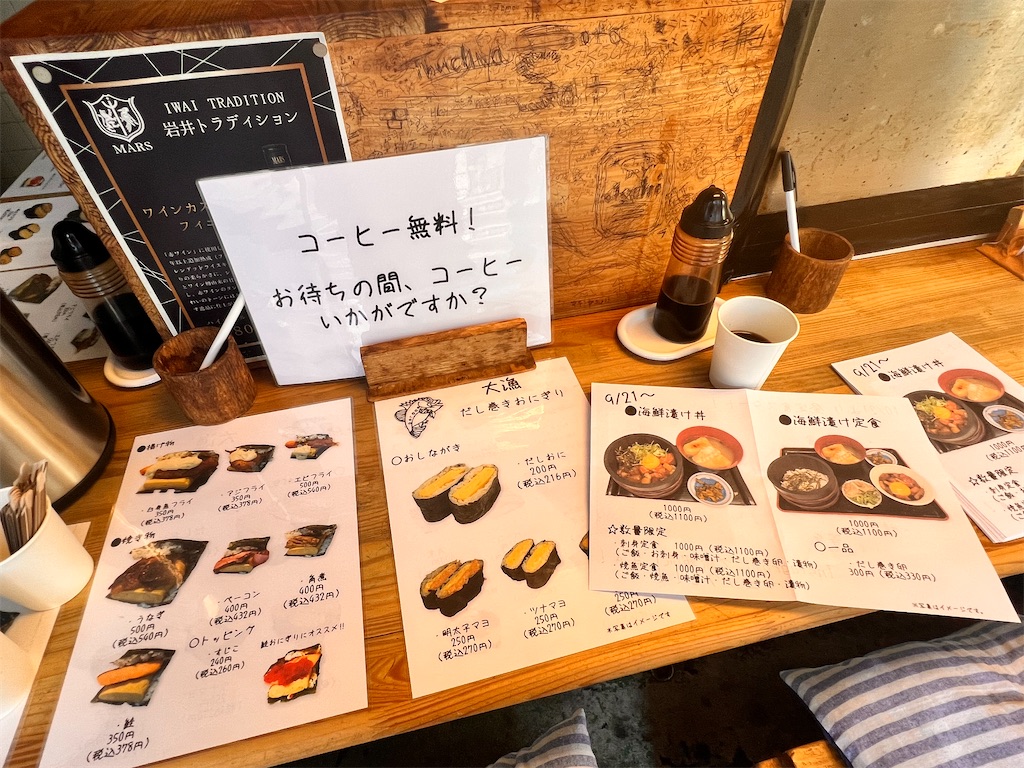 IWAI TRADITION
岩井トラディション
MARS
MARS
ワインカス
フィニ
コーヒー無料!
お待ちの間、コーヒー
いかがですか?
●揚げ物
・白身魚フライ
350円
(税込378円)
・アジフライ
350円
(税込378円)
・エビフライ
500円
(税込540円)
●焼き物
・うなぎ
500円
(税込540円)
・ベーコン
400円
(税込432円)
・角煮
400円
(税込432円)
○トッピング
・すじこ
240円
(税込260円)
鮭おにぎりにオススメ!!
・鮭
350円
(税込378円)
大漁
だし巻きおにぎり
○おしながき
・だしおに
200円
(税込216円)
・明太子マヨ
250円
(税込270円)
・ツナマヨ
250円
(税込270円)
250円
(税込270円)
※写真はイメージです。
9/21~
●海鮮漬け丼
1000円
(税込1100円)
☆数量限定
・刺身定食 1000円(税込1100円)
(ご飯・お刺身・味噌汁・だし巻き卵・漬物)
・焼魚定食 1000円(税込1100円)
(ご飯・焼魚・味噌汁・だし巻き卵・漬物)
●海鮮漬け定食
1000円
(税込1100円)
○一品
・だし巻き卵
300円(税込330円)
※写真はイメージです。
9/21~
●海鮮漬け丼
1000円
(税込1100
☆数量限定
・刺身定食